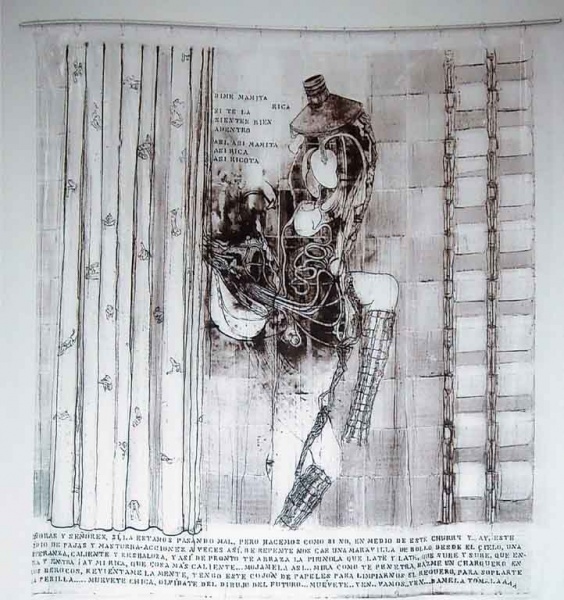 DIME MAMITA
RICA
SI TE LA
SIENTES BIEN
ADENTRO
ASI, ASI MAMITA
ASI RICA
ASI RICOTA
SEÑORAS Y SEÑORES, SI, LA ESTAMOS PASANDO MAL, PERO HACEMOS COMO SI NO, EN MEDIO DE ESTE CHURRE Y... AY, ESTE
DE PAJAS Y MASTURBA-ACCIONES A VECES ASÍ, DE REPENTE NOS CAE UNA MARAVILLA DE BOLLO DESDE EL CIELO, UNA
CALIENTE Y RESBALOZA, Y ASÍ DE PRONTO TE ABRAZA LA QUE LATE Y LATE, QUE SUBE Y SUBE, QUE EN-
TRA Y ENTRA ¡AY MI RICA, QUE COSA MÁS CALIENTE... MOJAMELA ASI... MIRA COMO TE PENETRA, HAZME UN CHARQUERO EN
LOS REVIÉNTAME LA MENTE, TENGO ESTE COJÓN DE PAPELES PARA LIMPIARNOS EL REGUERO, PARA SOPLARTE
LA PERILLA..... MUEVETE CHICA, OLVÍDATE DEL DEL FUTURO... MUEVETE... VEN.. VAMOS, VEN... DAMELA TOMALAAAA